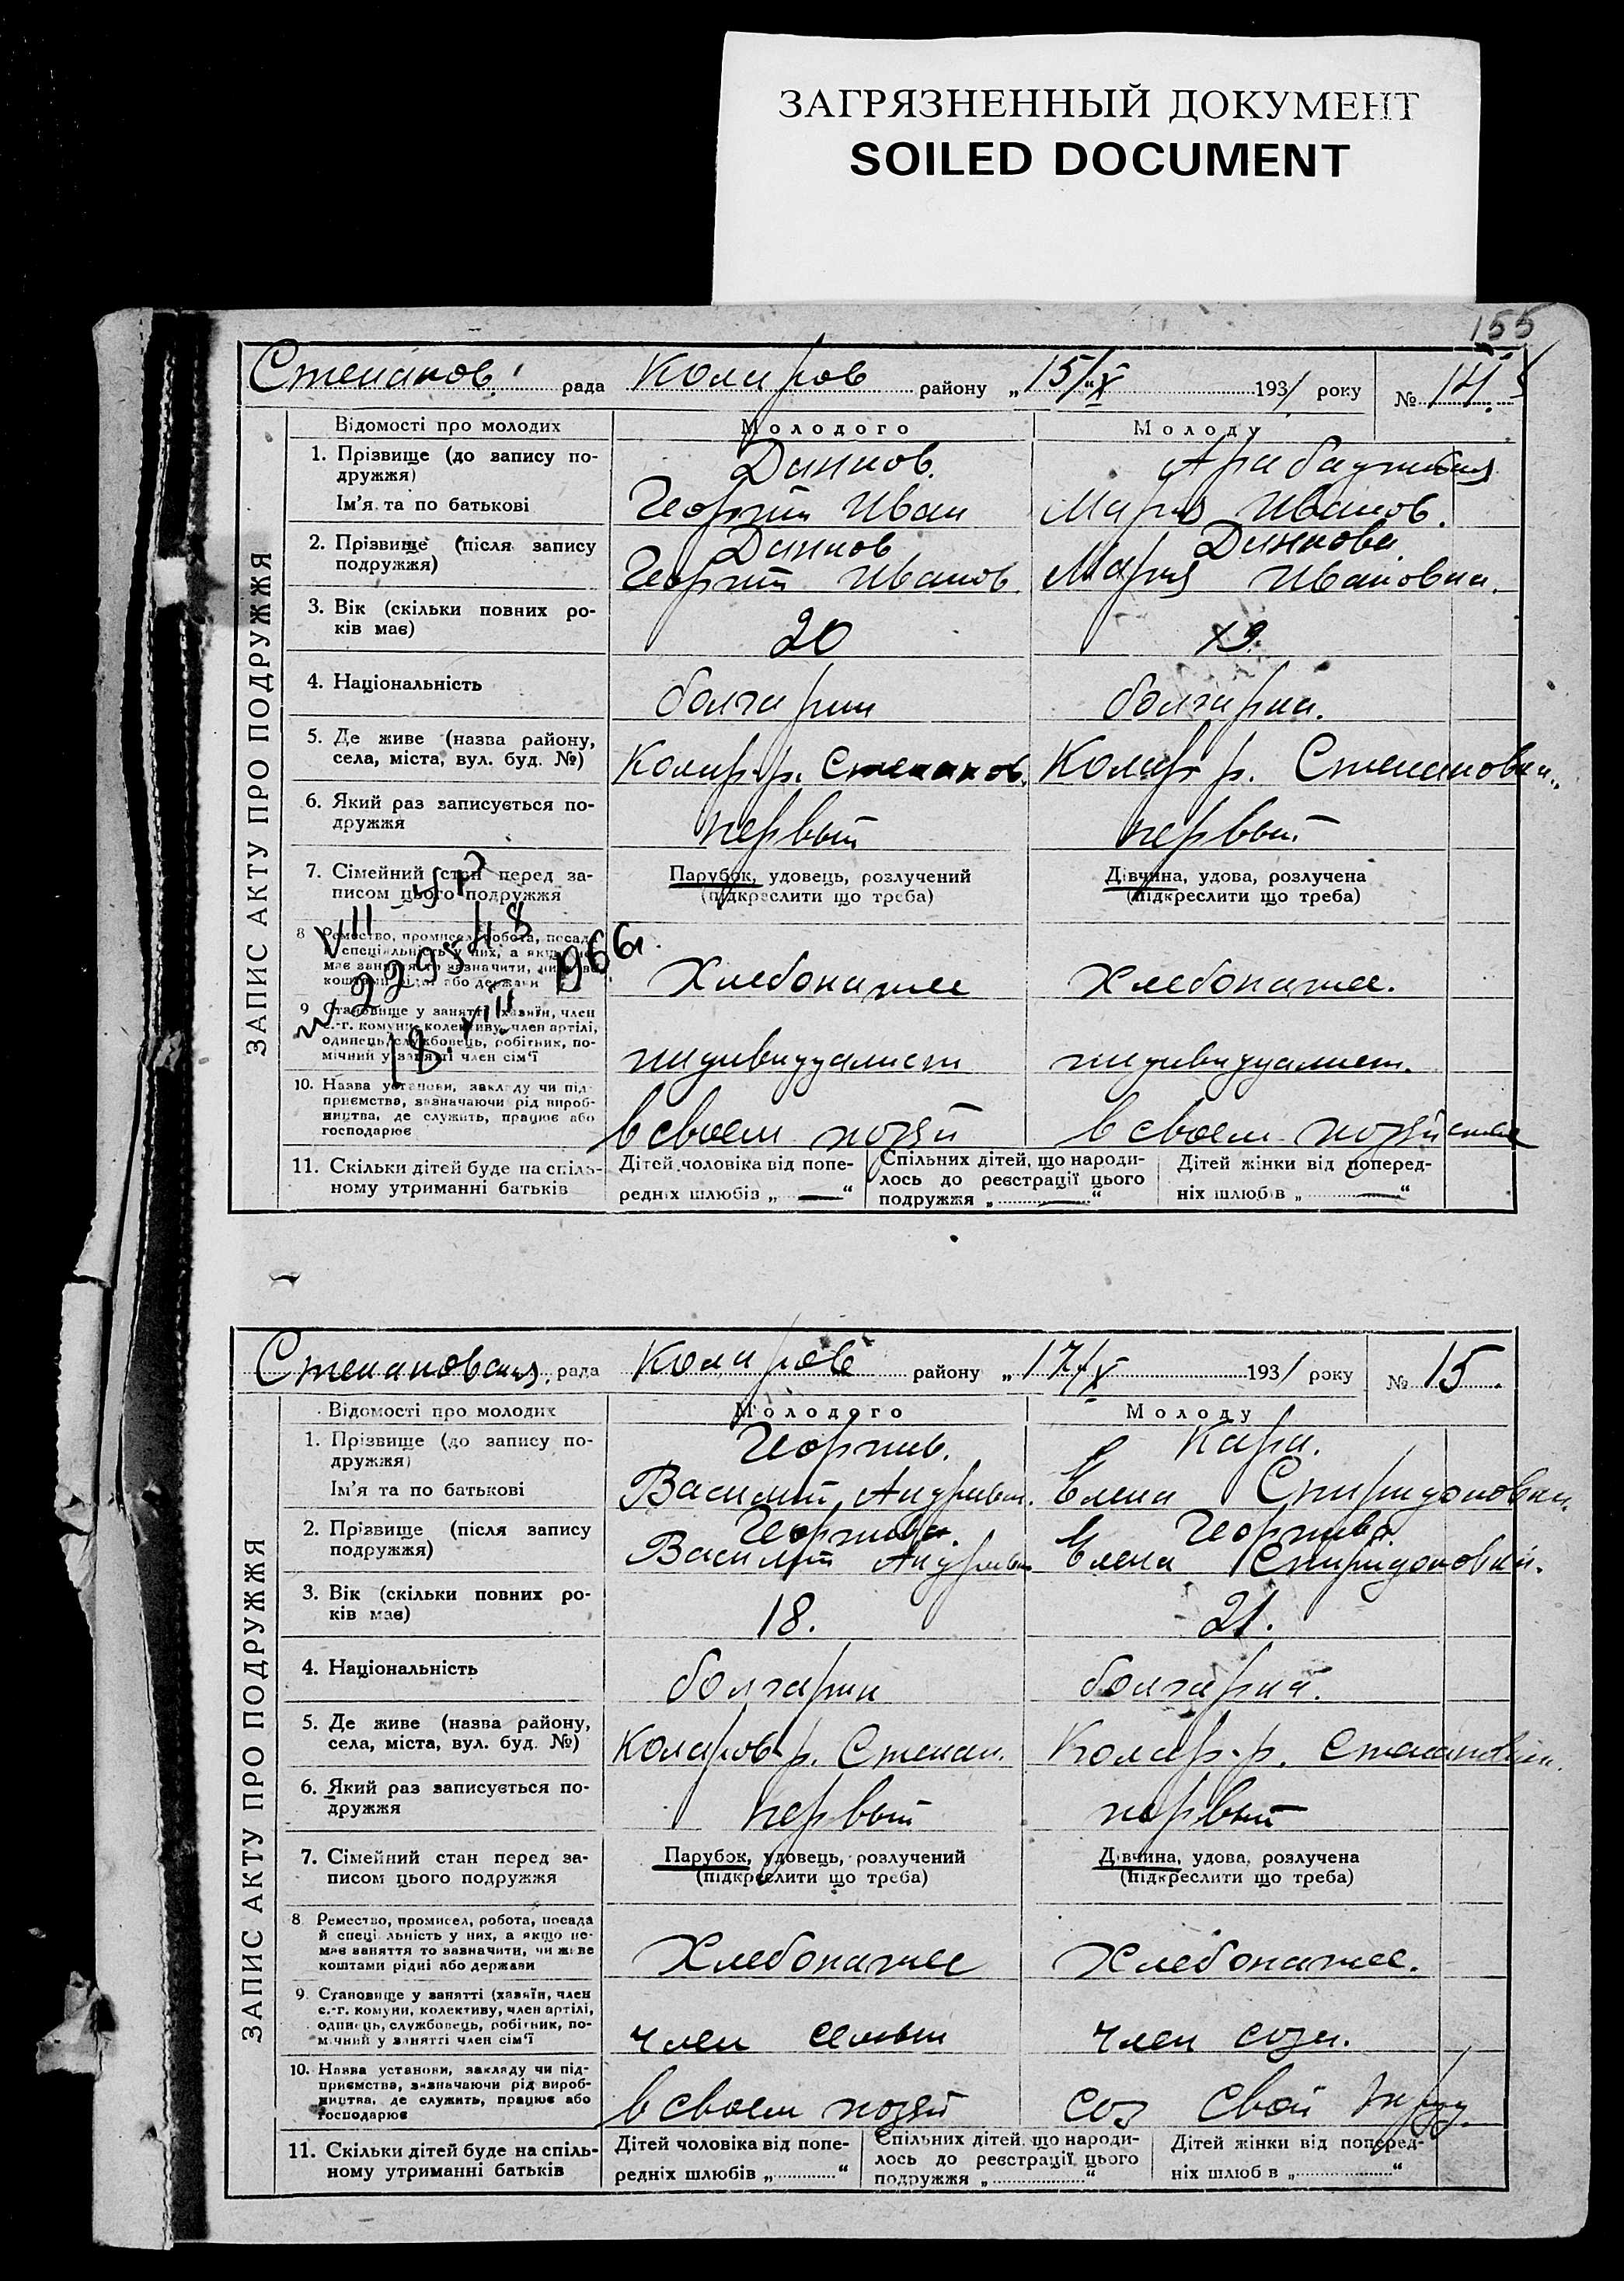 ЗАГРЯЗНЕННЫЙ ДОКУМЕНТ
SOILED DOCUMENT
155
Степанов. рада Колиров району „15/"X 1931 року № 14.
ЗАПИС АКТУ ПРО ПОДРУЖЖЯ
Відомості про молодих Молодого Молоду
1. Прізвище (до запису по-
дружжя) Данков.
Ім'я та по батькові Георгий Иван Мария Иванов.
2. Прізвище (після запису Данков Данкова
подружжя) Георгий Иванов. Мария Ивановна.
3. Вік (скільки повних ро-
ків має) 20 19.
4. Національність болгарин болгарка.
5. Де живе (назва району,
села, міста, вул. буд. №) Колар. р. Степанов. Колар р. Степановка.
6. Який раз записується по-
дружжя первый первый
7. Сімейний стан перед за- Парубок, удовець, розлучений Дівчина, удова, розлучена
писом цього подружжя (підкреслити що треба) (підкреслити що треба)
8 Ремество, промисел, робота, посада
й спеціальність у них, а якщо не-
має заняття то зазначити, чи живе
коштами рідні або держави Хлебопашес Хлебопашес.
9. Становище у занятті (хазяїн, член
с.-г. комуни, колективу, член артілі,
одинець, службовець, робітник, по-
мічний у занятті член сім'ї индивидуалист индивидуалист.
10. Назва установи, закладу чи під-
приємства, зазначаючи рід вироб-
ництва, де служить, працює або
господарює в своем хозяй в своем хозяйстве
11. Скільки дітей буде на спіль- Дітей чоловіка від попе- Спільних дітей, що народи- Дітей жінки від поперед-
ному утриманні батьків редніх шлюбів „ — “ лось до реєстрації цього ніх шлюбів „ — “
подружжя „ — “
Степановская рада Коларов району „17/X 1931 року № 15.
ЗАПИС АКТУ ПРО ПОДРУЖЖЯ
Відомості про молодих Молодого Молоду
1. Прізвище (до запису по- Георгиев. Кара.
дружжя)
Ім'я та по батькові Василий Андреевич. Елена Спиридоновна.
2. Прізвище (після запису Георгиева.
подружжя) Василий Андреевич Елена Спиридоновна.
3. Вік (скільки повних ро-
ків має) 18. 21.
4. Національність болгарин болгарка.
5. Де живе (назва району,
села, міста, вул. буд. №) Коларов р. Степан. Колар. р. Степановка.
6. Який раз записується по-
дружжя первый первый
7. Сімейний стан перед за- Парубок, удовець, розлучений Дівчина, удова, розлучена
писом цього подружжя (підкреслити що треба) (підкреслити що треба)
8. Ремество, промисел, робота, посада
й спеціальність у них, а якщо не-
має заняття то зазначити, чи живе
коштами рідні або держави Хлебопашес Хлебопашес.
9. Становище у занятті (хазяїн, член
с.-г. комуни, колективу, член артілі,
одинець, службовець, робітник, по-
мічний у занятті член сім'ї член семьи член соза.
10. Назва установи, закладу чи під-
приємства, зазначаючи рід вироб-
ництва, де служить, працює або
господарює в своем хозяй соз Свой труд.
11. Скільки дітей буде на спіль- Дітей чоловіка від попе- Спільних дітей, що народи- Дітей жінки від поперед-
ному утриманні батьків редніх шлюбів „ “ лось до реєстрації цього ніх шлюбів „ “
подружжя „ “